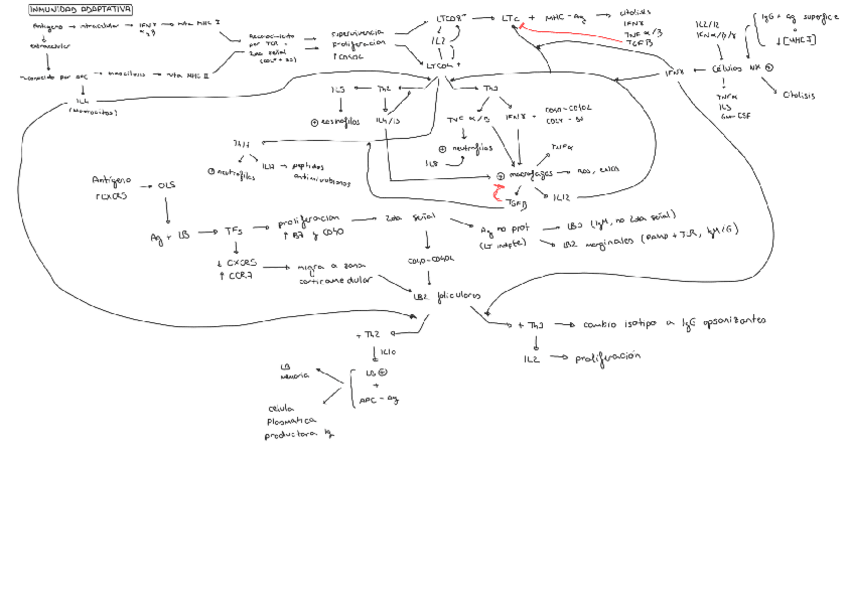 INMUNIDAD ADAPTATIVA
Antígeno → intracelular → IFN γ → ruta MHC I
α y β
extracelular
reconocido por APC → macrófagos → ruta MHC II
IL4
Reconocimiento
por TCR +
2da señal
supervivencia
proliferación
LTCD8+ → LTc + MHC-Ag → citólisis
IFNγ
TNF α/β
TGFβ
IL2
LTCD4+
IL2/12
IFN α/β/γ
IgG + ag superficie
↓ [MHC I]
IFNγ ← Células NK ⊕
TNFα
IL3
GM-CSF
Citólisis
IL5 ← Th2
⊕ eosinófilos
IL4/13
Th1
TNF α/β
IFN γ + CD40-CD40L
⊕ neutrófilos
IL8
⊕ macrófagos → ROS, enzs
TNFα
IL12
TGFβ
Th17
⊕ neutrófilos
IL17 → péptidos
antimicrobianos
Antígeno
↑CXCR5
→ OLS
Ag + LB → TFs → proliferación → 2da señal
↑ B7 y CD40
↓ CXCR5
↑ CCR7
→ migra a zona
corticomedular
Ag no prot
(LT indpte)
→ LB1 (IgM, no 2da señal)
→ LB2 marginales (PAMP + TLR, IgM/G)
CD40-CD40L
LB2 foliculares
+ Th2
IL10
LB ⊕
+
APC - Ag
LB
memoria
célula
plasmática
productora Ig
+ Th1 → cambio isotipo a IgG opsonizantes
IL2 → proliferación